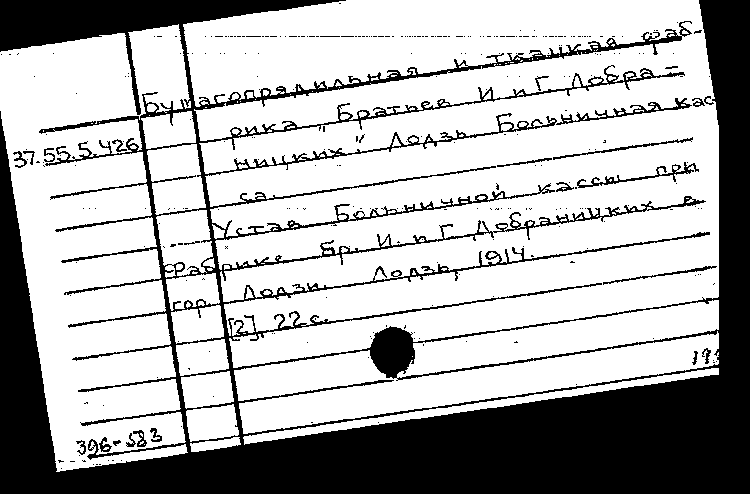 Бумагопрядильная и ткацкая фаб-
рика "Братьев И и Г. Добра-
37.55.5.426
ницких". Лодзь. Больничная кас
са.
Устав Больничной кассы при
Фабрике Бр. И. и Г. Добраницких в
гор. Лодзи. Лодзь, 1914.
[2], 22 с.
396-583